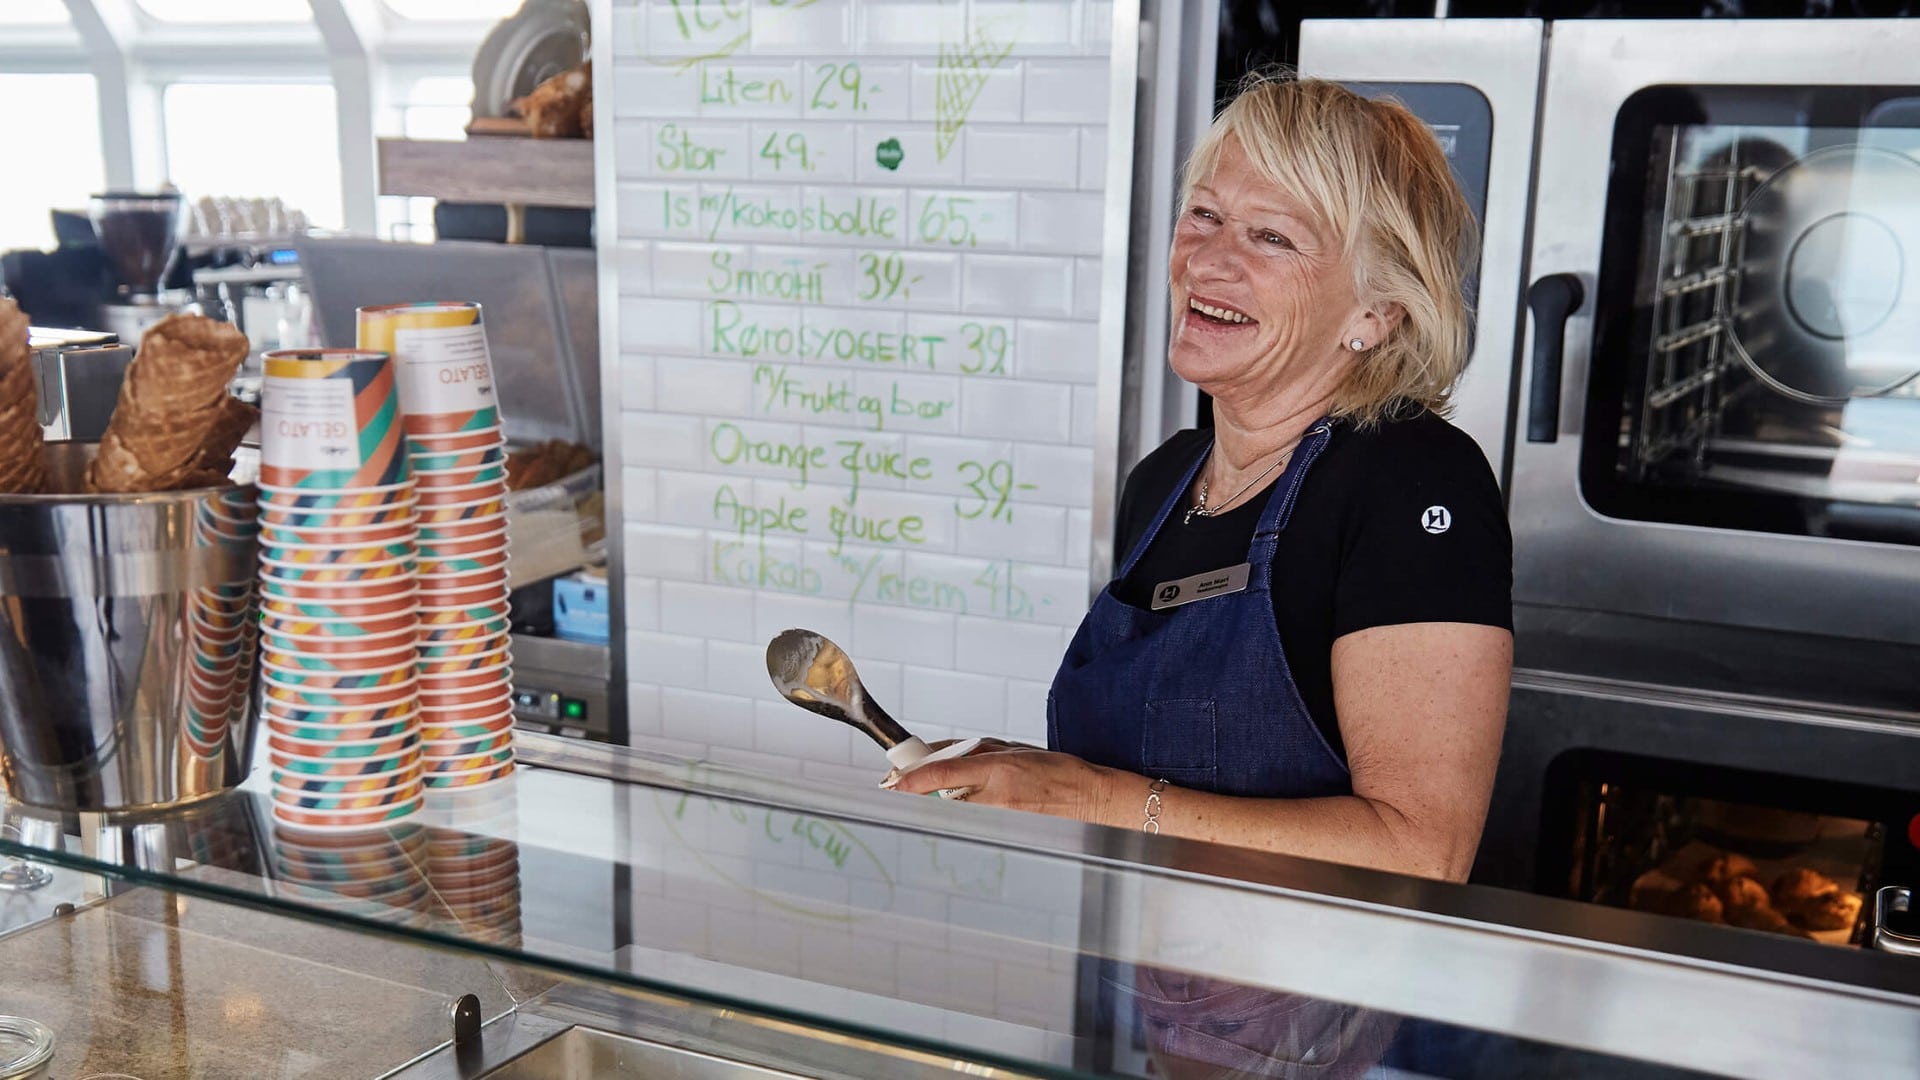 Ice
Liten 29,-
Stor 49,-
Is m/kokosbolle 65,-
SMOOTHI 39,-
RØROSYOGERT 39,-
m/Frukt og bær
Orange Juice 39,-
Apple Juice
Kakao m/krem 46,-
GELATO
GELATO
Ann Mari